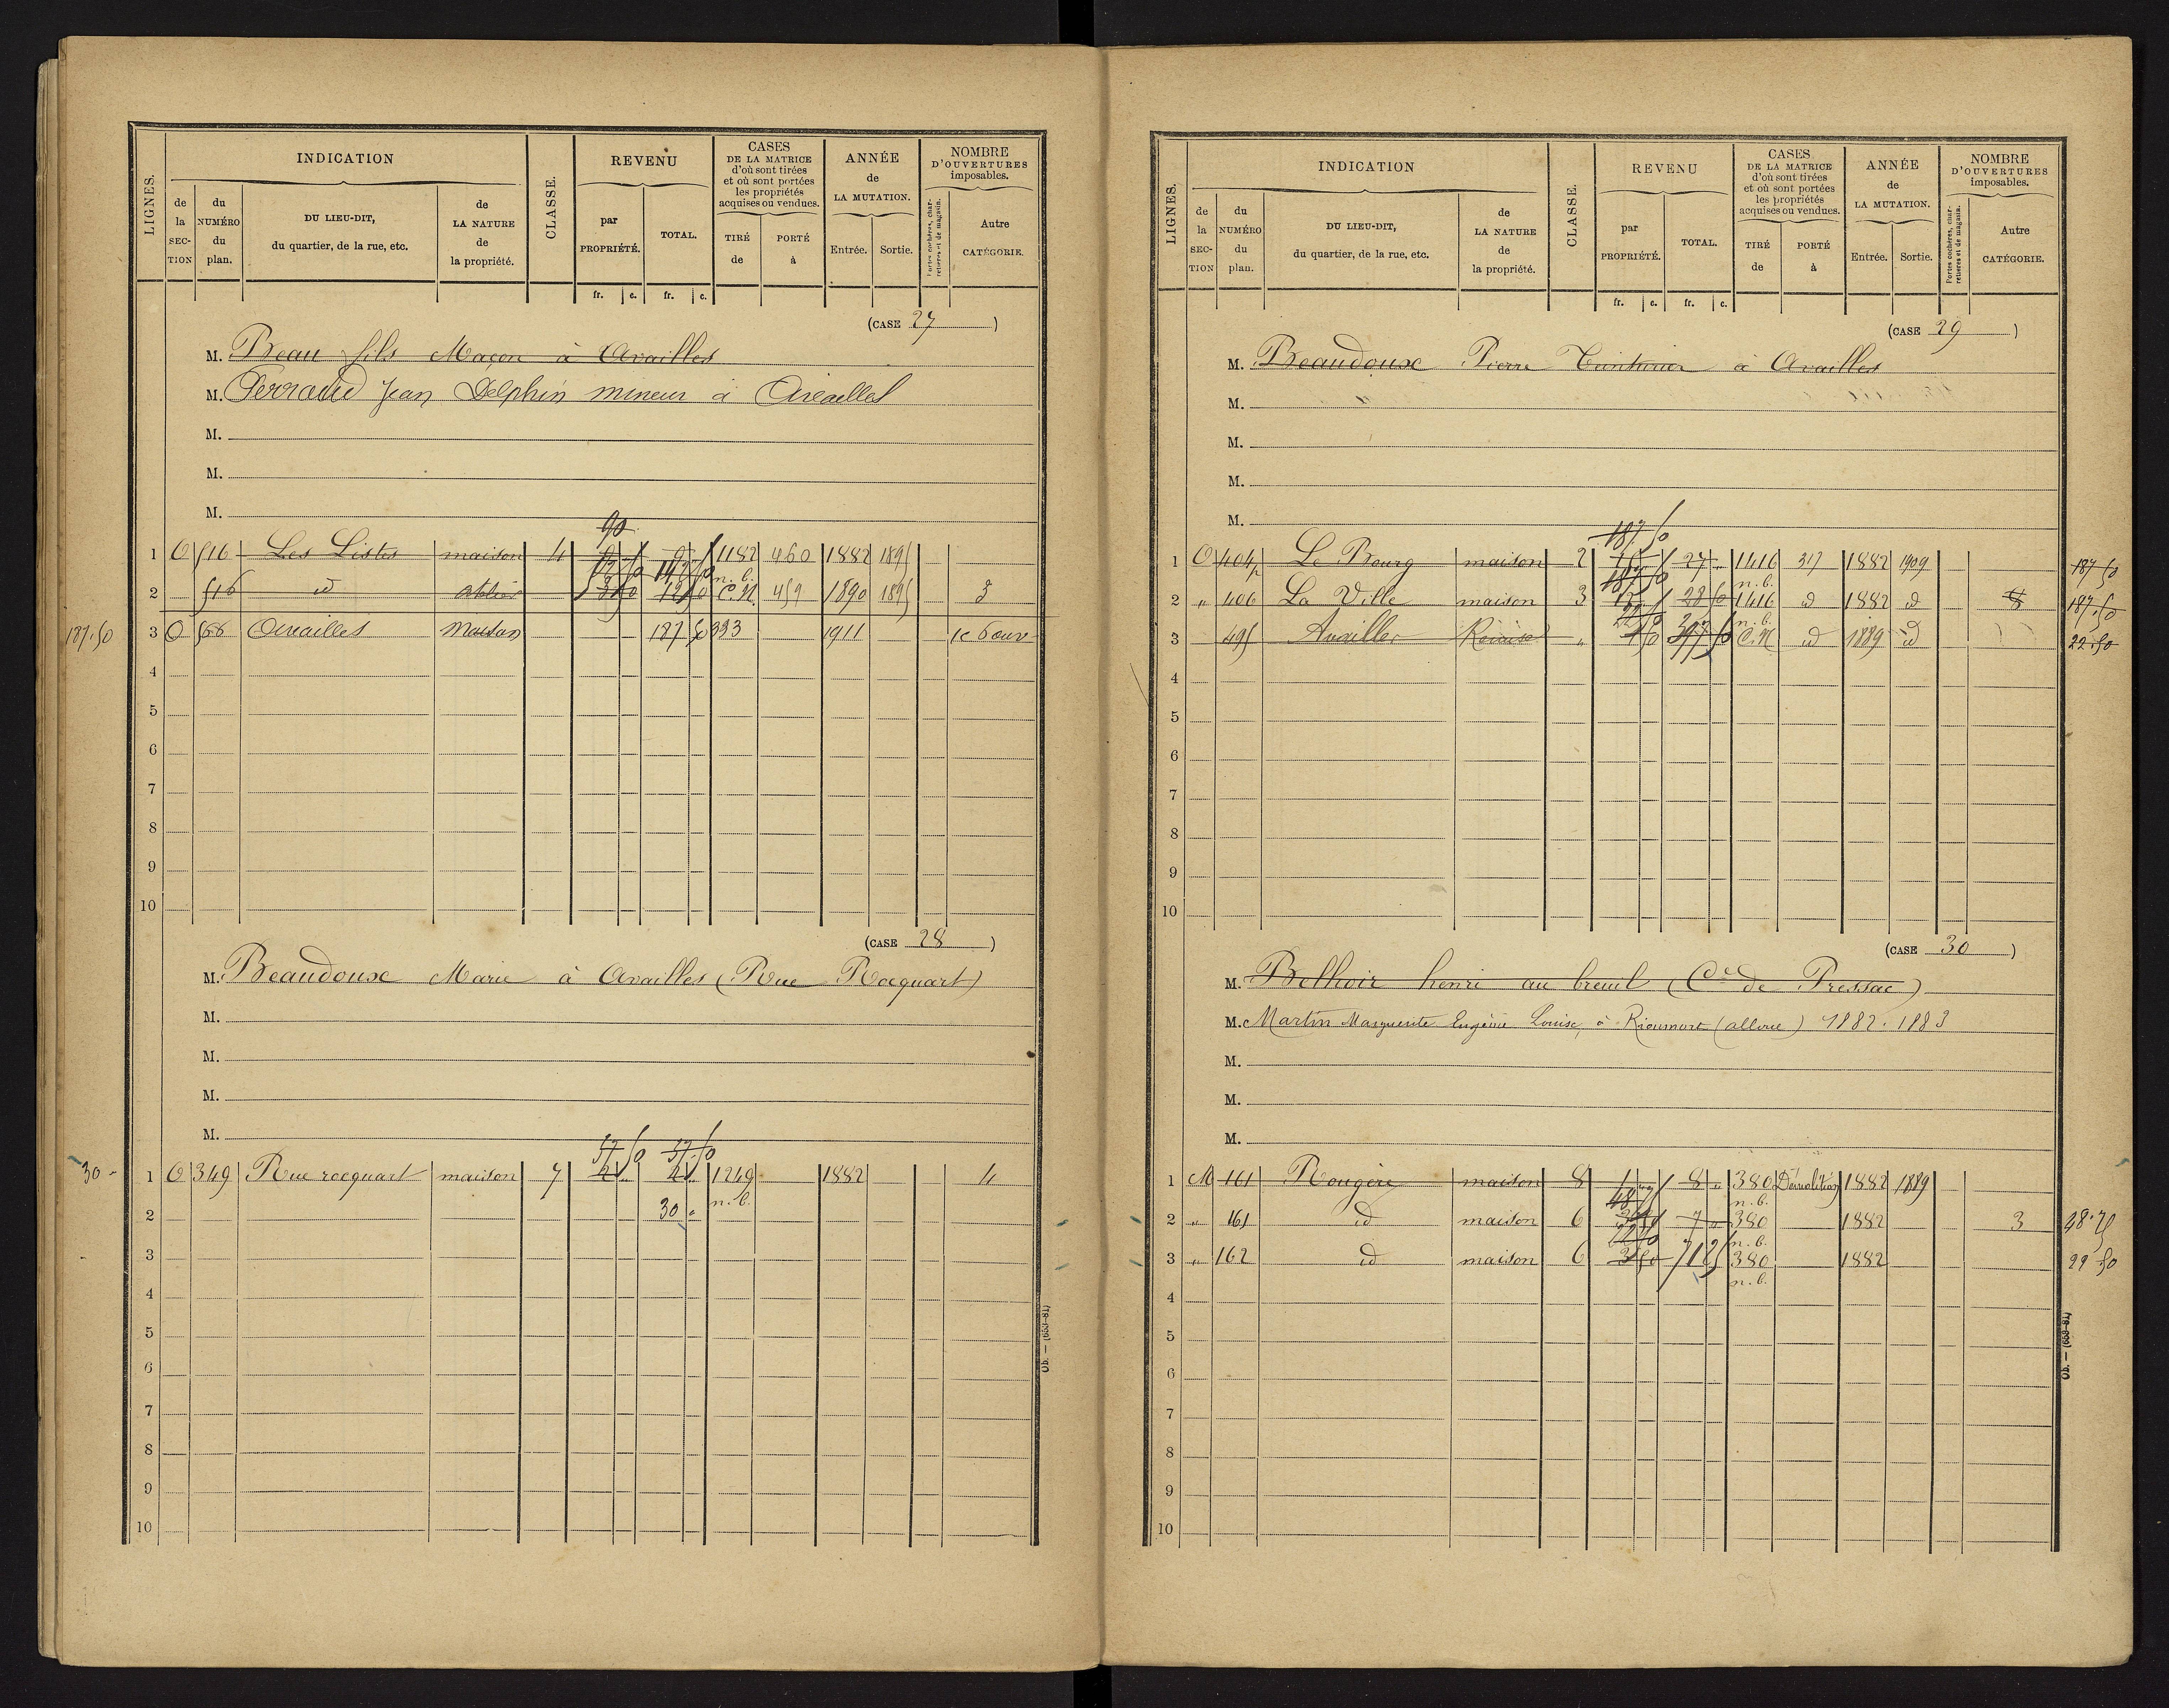 LIGNES.
INDICATION
de la SECTION
du NUMÉRO du plan.
DU LIEU-DIT, du quartier, de la rue, etc.
de LA NATURE de la propriété.
CLASSE.
REVENU
par PROPRIÉTÉ.
TOTAL.
fr. c. fr. c.
CASES
DE LA MATRICE
d'où sont tirées
et où sont portées
les propriétés
acquises ou vendues.
TIRÉ de
PORTÉ à
ANNÉE
de
LA MUTATION.
Entrée. Sortie.
NOMBRE
D'OUVERTURES
imposables.
Portes cochères, charretières et de magasin.
Autre CATÉGORIE.
(CASE 27)
M. Beau fils Maçon à Availles
M. Ferraud Jean Delphin mineur à Availles
M.
M.
M.
90
1 O 516 Les Listes maison 4 1182 460 1882 1895
n. b.
2 516 id atelier C.N. 459 1890 1895 3
187.50 3 O 566 Availles Maison 187 50 393 1911 1c 6 ouv
4
5
6
7
8
9
10
(CASE 28)
M. Beaudoux Marie à Availles (Rue Rocquart)
M.
M.
M.
M.
37.50 37.50
30 - 1 O 349 Rue rocquart maison 7 1249 1882 4
2 30 " n. b.
3
4
5
6
7
8
9
10
Ob. — (653-81)
LIGNES.
INDICATION
de la SECTION
du NUMÉRO du plan.
DU LIEU-DIT, du quartier, de la rue, etc.
de LA NATURE de la propriété.
CLASSE.
REVENU
par PROPRIÉTÉ.
TOTAL.
fr. c. fr. c.
CASES
DE LA MATRICE
d'où sont tirées
et où sont portées
les propriétés
acquises ou vendues.
TIRÉ de
PORTÉ à
ANNÉE
de
LA MUTATION.
Entrée. Sortie.
NOMBRE
D'OUVERTURES
imposables.
Portes cochères, charretières et de magasin.
Autre CATÉGORIE.
(CASE 29)
M. Beaudoux Pierre Teinturier à Availles
M.
M.
M.
M.
187.50
1 O 404p Le Bourg maison 2 27 1416 317 1882 1909 187 50
n. b.
2 " 406 La Ville maison 3 28 50 1416 id 1882 id 187.50
n. b.
3 495 Availles Remise " C.N id 1889 id 22.50
4
5
6
7
8
9
10
(CASE 30)
M. Belhoir henri au breuil (Cne de Pressac)
M. Martin Marguerite Eugénie Louise, à Rieumort (alloue) 1882. 1883
M.
M.
M.
1 M 161 Rougère maison 8 8 " 380 Démolition 1882 1889
n. b.
2 " 161 id maison 6 380 1882 3 48.75
n. b.
3 " 162 id maison 6 3 50 71 25 380 1882 22 50
n. b.
4
5
6
7
8
9
10
Ob. — (653-81)